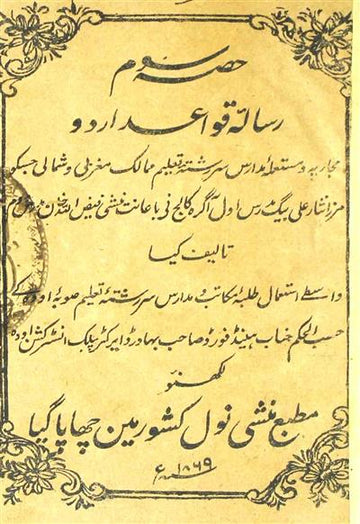 حصہ سوم
رسالۂ قواعد اردو
مجاریہ و مستعملہ مدارس سررشتۂ تعلیم ممالک مغربی و شمالی جسکو
مرزا نثار علی بیگ مدرس اول آگرہ کالج نی باعانت منشی فیض اللہ خان مدرس
تالیف کیا
واسطے استعمال طلبۂ مکاتب و مدارس سررشتۂ تعلیم صوبۂ اودہ کے
حسب الحکم جناب ہینڈفورڈ صاحب بہادر ڈایرکٹر پبلک انسٹرکشن اودہ
لکھنؤ
مطبع منشی نول کشور مین چھاپا گیا
۱۸۶۹ء